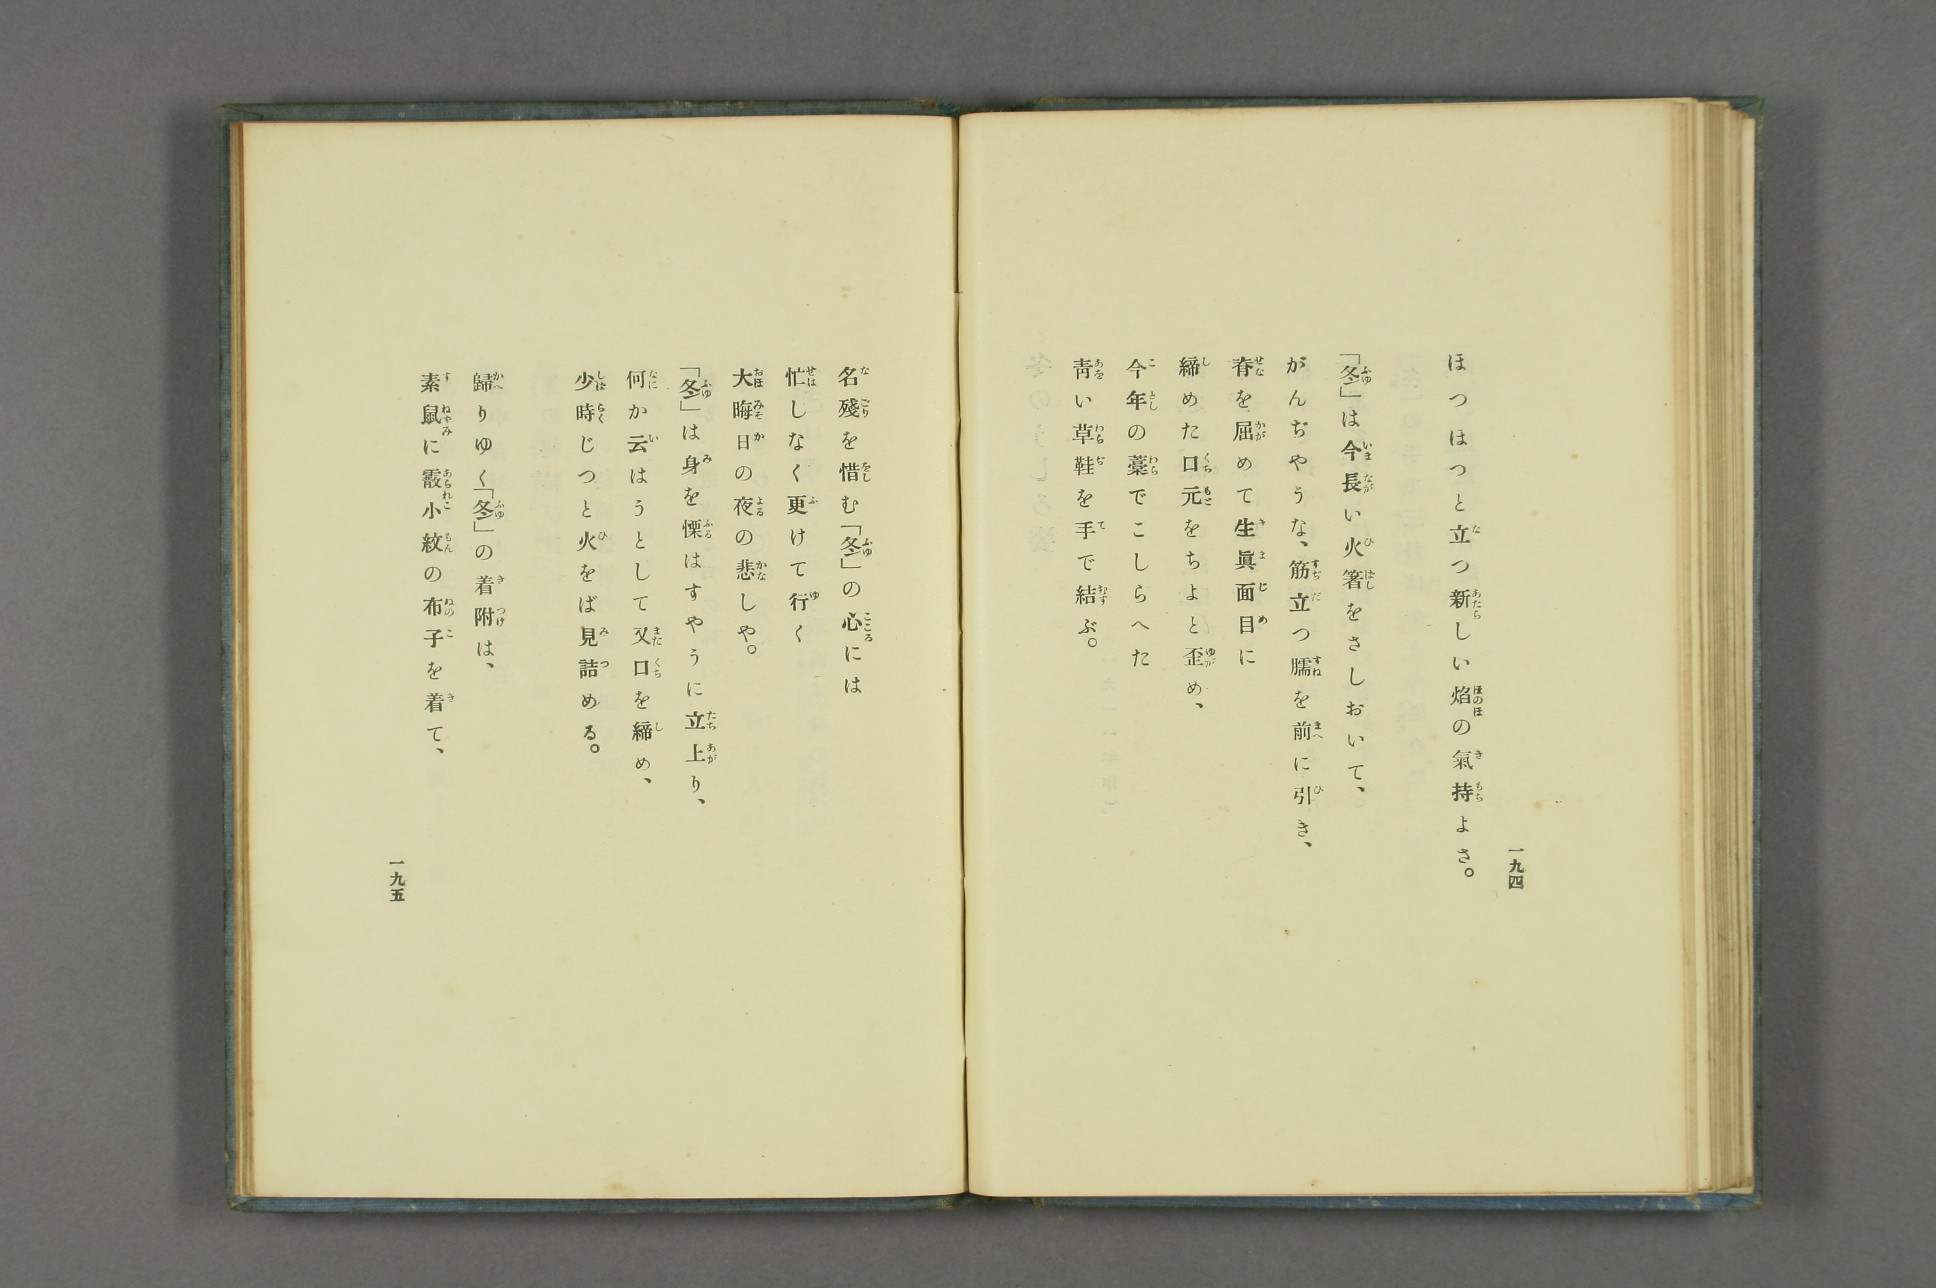 一九四
ほつほつと立つ新しい焰の氣持よさ。
「冬」は今長い火箸をさしおいて、
がんぢやうな、筋立つ臑を前に引き、
脊を屈めて生眞面目に
締めた口元をちよと歪め、
今年の藁でこしらへた
靑い草鞋を手で結ぶ。
名殘を惜む「冬」の心には
忙しなく更けて行く
大晦日の夜の悲しや。
「冬」は身を慄はすやうに立上り、
何か云はうとして又口を締め、
少時じつと火をば見詰める。
歸りゆく「冬」の着附は、
素鼠に霰小紋の布子を着て、
一九五